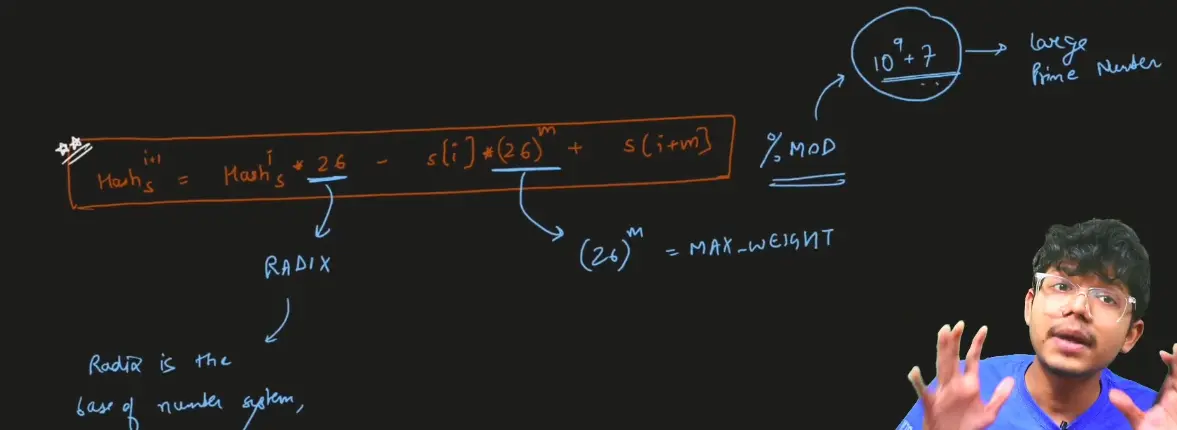 10^9 + 7 → Large
Prime Number
Hash_s^{i+1} = Hash_s^i * 26 - s[i] * (26)^m + s[i+m]
% MOD
(26)^m = MAX_WEIGHT
RADIX
Radix is the
base of number system,